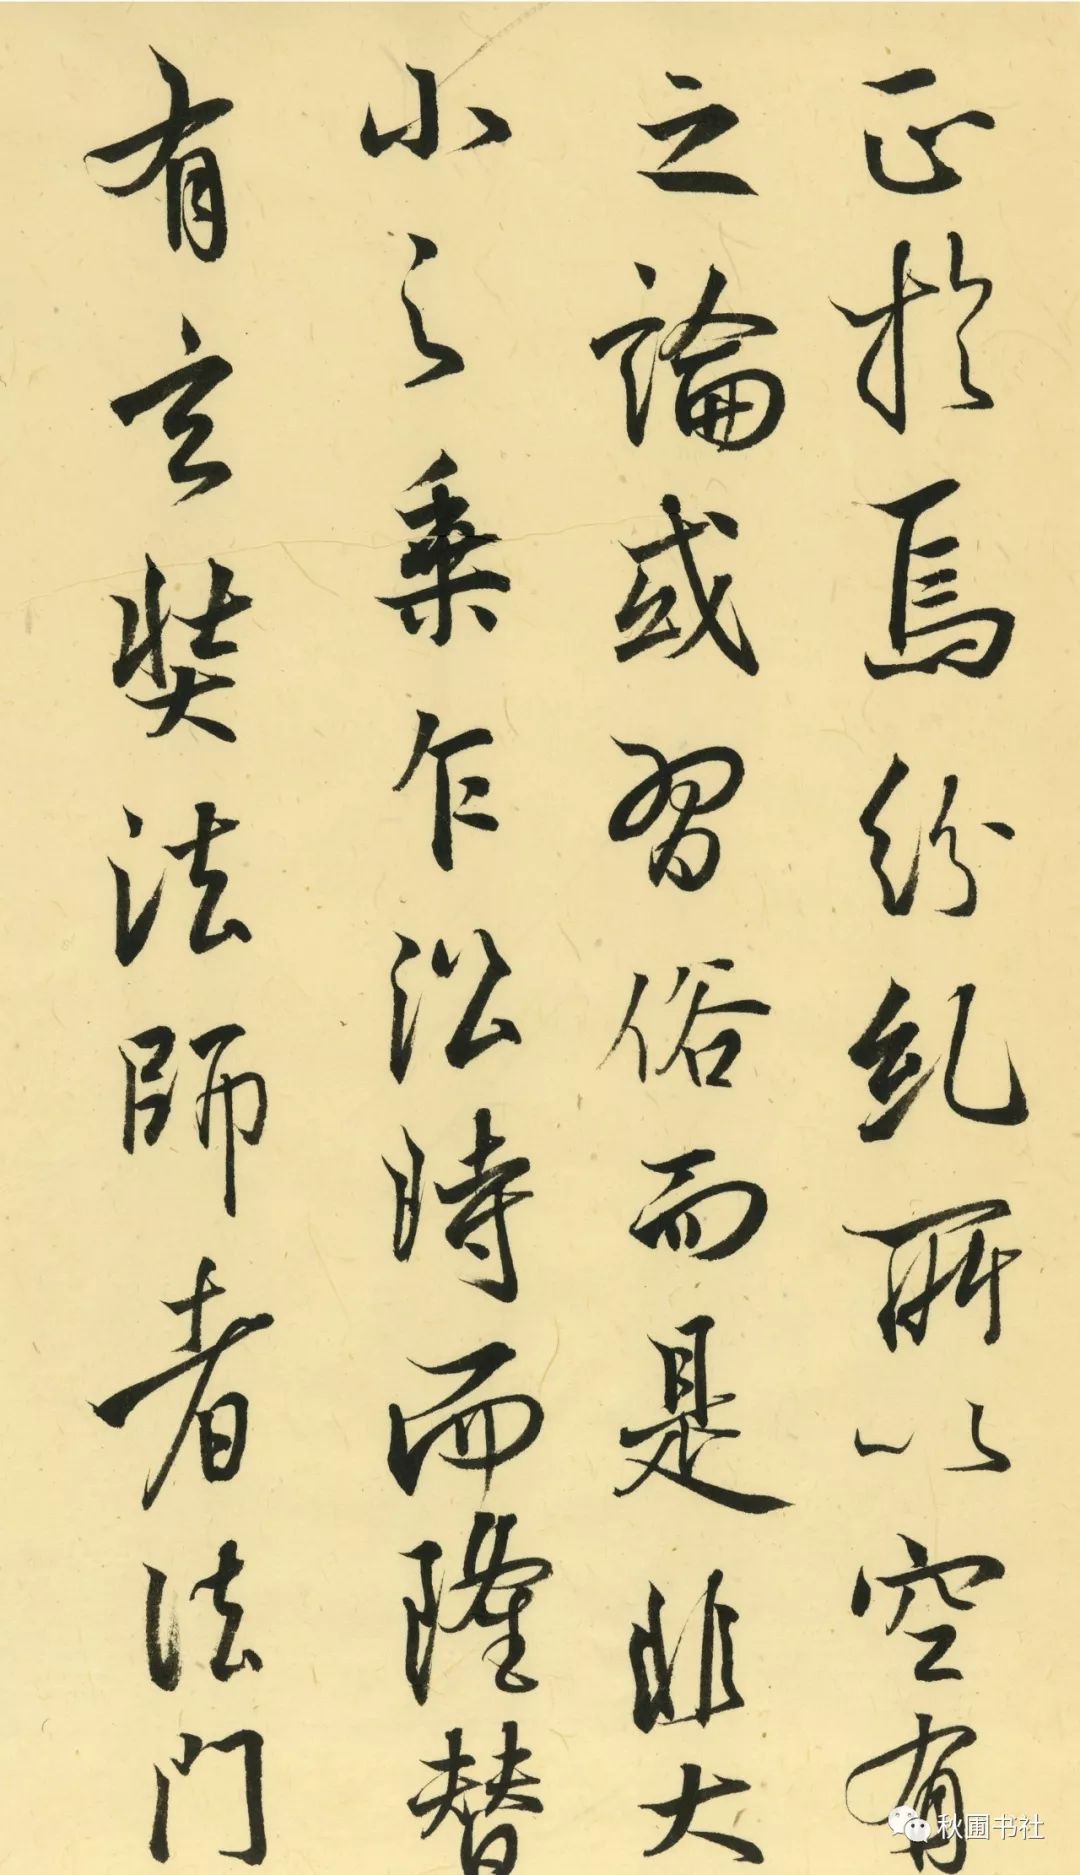 正於焉紛乱所以空有
之論或習俗而是非大
小之乘乍沿時而隆替
有玄奘法師者法門
秋圃书社